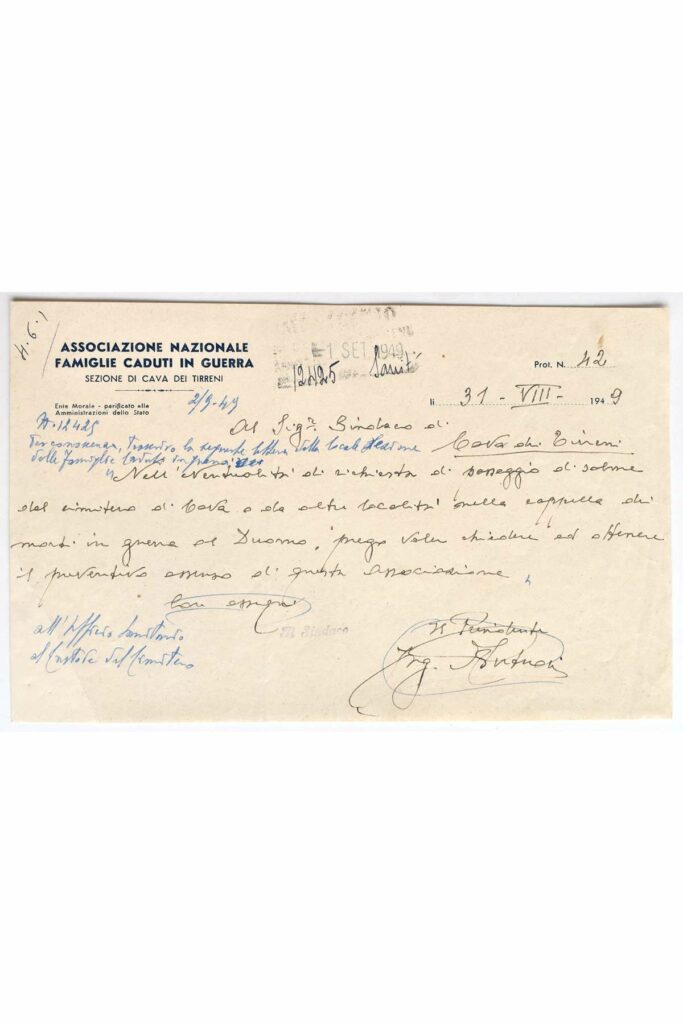 4.6.1
ASSOCIAZIONE NAZIONALE
FAMIGLIE CADUTI IN GUERRA
SEZIONE DI CAVA DEI TIRRENI
Ente Morale - parificato alle
Amministrazioni dello Stato
-1 SET. 1949
12425 Sanit
Prot. N. 42
lì 31 - VIII - 1949
2/9-49
N. 12425
Al Sig. Sindaco di
Cava dei Tirreni
Per conoscenza, trascrivo la seguente lettera della locale sezione
delle famiglie Caduti in guerra:
"Nell'eventualità di richiesta di passaggio di salme
dal cimitero di Cava o da altre località nella cappella dei
morti in guerra al Duomo, prego voler chiedere ed ottenere
il preventivo assenso di questa Associazione"
Con ossequi
Il Sindaco
Il Presidente
Ing.
all'Ufficio Sanitario
al Custode del Cimitero